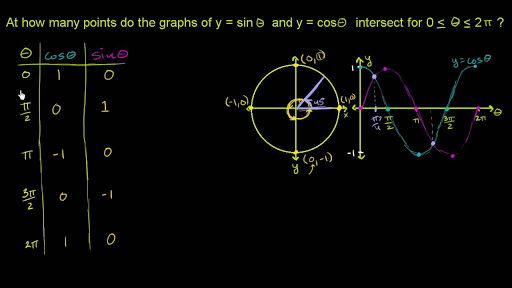 At how many points do the graphs of y = sin θ and y = cosθ intersect for 0 ≤ θ ≤ 2π ?
θ cosθ sinθ
0 1 0
π/2 0 1
π -1 0
3π/2 0 -1
2π 1 0
(0,1)
(-1,0)
45
(1,0)
x
(0,-1)
y
y
y=cosθ
1
-1
π/4 π/2 π 3π/2 2π θ